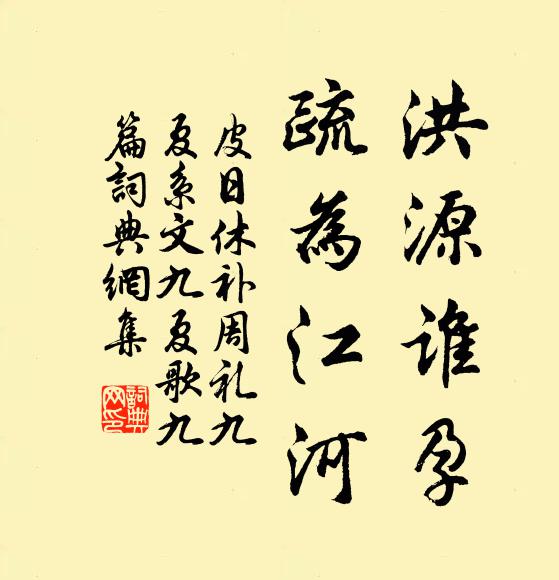 洪源誰孕
疏為江河
皮日休补周礼九
夏系文九夏歌九
篇詞典網集
詞典
网印